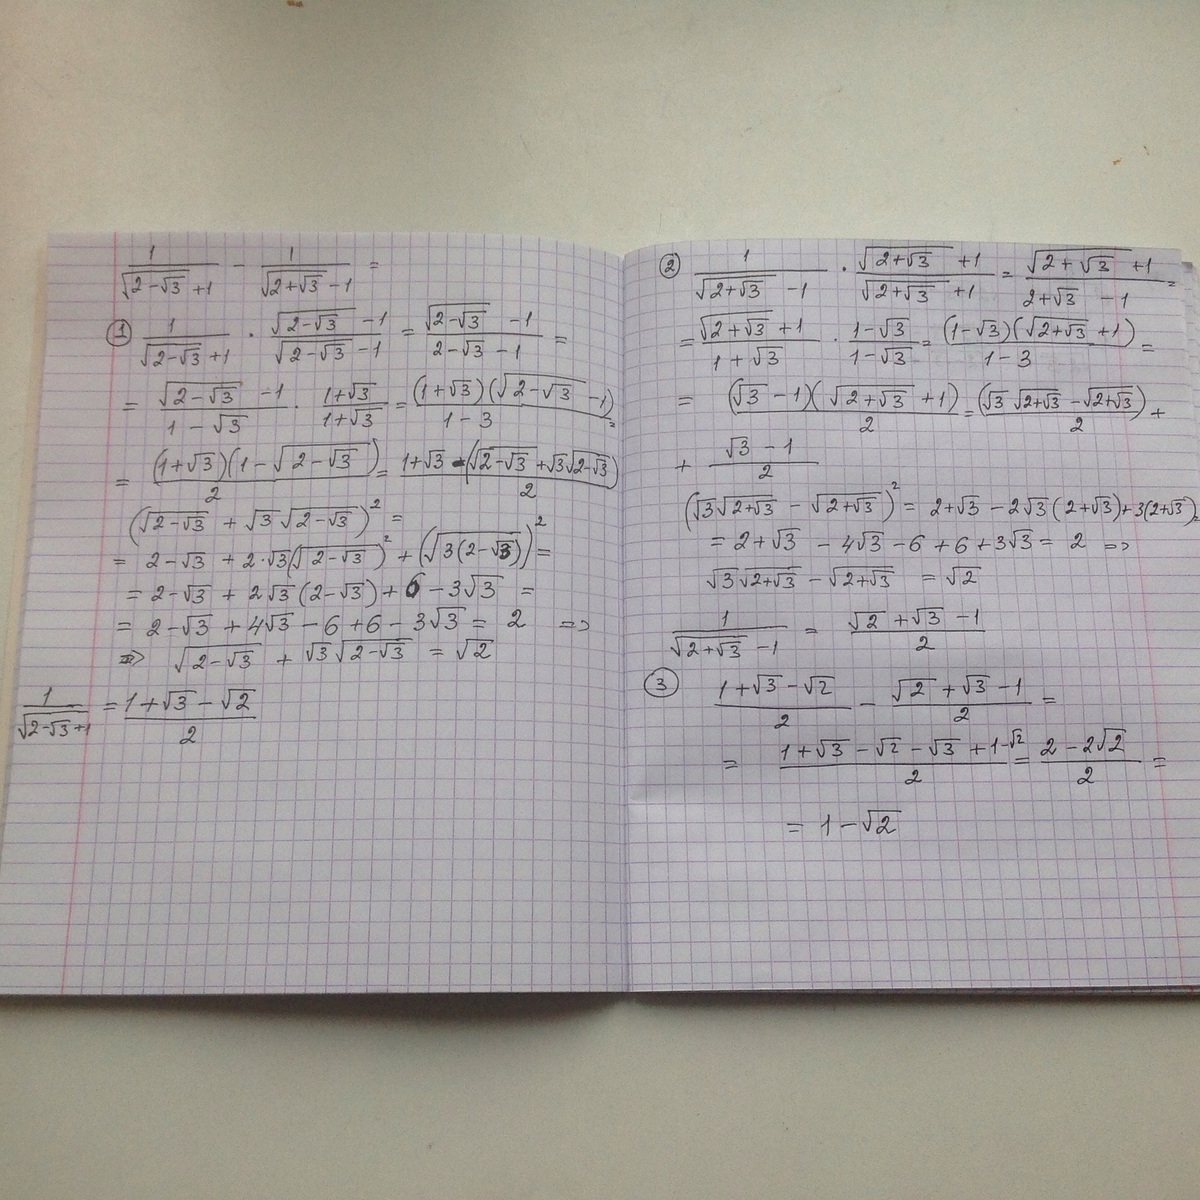 1/(√(2-√3) +1) - 1/(√(2+√3) -1) =
① 1/(√(2-√3) +1) · (√(2-√3) -1)/(√(2-√3) -1) = (√(2-√3) -1)/(2-√3 -1) =
= (√(2-√3) -1)/(1-√3) · (1+√3)/(1+√3) = (1+√3)(√(2-√3) -1)/(1-3) =
= (1+√3)(1-√(2-√3))/2 = (1+√3 -(√(2-√3) +√3√(2-√3)))/2
(√(2-√3) + √3√(2-√3))² =
= 2-√3 + 2·√3(√(2-√3))² + (√(3(2-√3)))² =
= 2-√3 + 2√3(2-√3) + 6 - 3√3 =
= 2-√3 + 4√3 - 6 + 6 - 3√3 = 2 =>
=> √(2-√3) + √3√(2-√3) = √2
1/(√(2-√3) +1) = (1+√3-√2)/2
② 1/(√(2+√3) -1) · (√(2+√3) +1)/(√(2+√3) +1) = (√(2+√3) +1)/(2+√3 -1) =
= (√(2+√3) +1)/(1+√3) · (1-√3)/(1-√3) = (1-√3)(√(2+√3) +1)/(1-3) =
= (√3-1)(√(2+√3) +1)/2 = (√3√(2+√3) -√(2+√3))/2 +
+ (√3-1)/2
(√3√(2+√3) - √(2+√3))² = 2+√3 - 2√3(2+√3) + 3(2+√3) =
= 2+√3 - 4√3 - 6 + 6 + 3√3 = 2 =>
√3√(2+√3) - √(2+√3) = √2
1/(√(2+√3) -1) = (√2+√3-1)/2
③ (1+√3-√2)/2 - (√2+√3-1)/2 =
= (1+√3-√2-√3+1-√2)/2 = (2-2√2)/2 =
= 1-√2